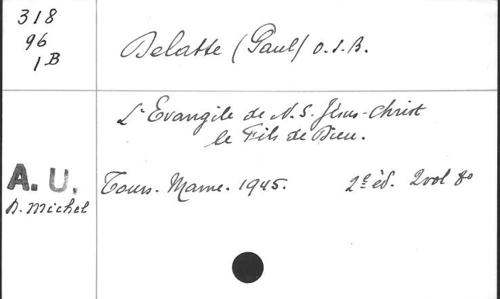 318
96
1B
Delatte (Paul) O.S.B.
L'Evangile de N.S. Jésus-Christ
le Fils de Dieu.
A. U.
A. Michel
Tours. Mame. 1945. 2e éd. 2vol 8o